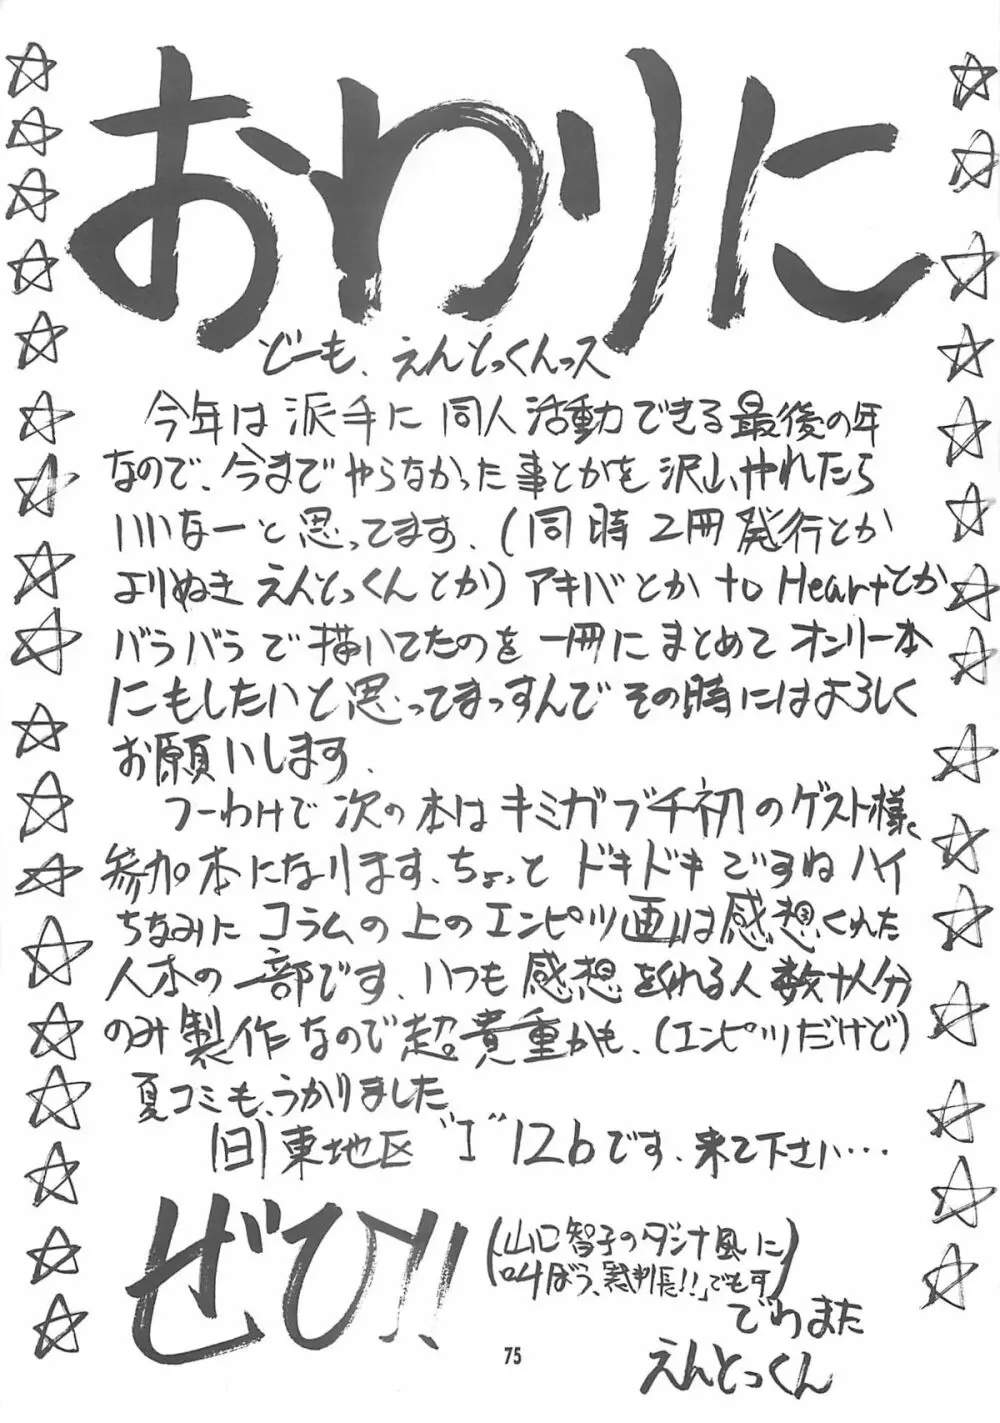 おわりに
どーも、えんとっくんっス
今年は派手に同人活動できる最後の年
なので、今までやらなかった事とかを沢山やれたら
いいなーと思ってます、(同時2冊発行とか
よりぬきえんとっくんとか)アキバとか to Heartとか
バラバラで描いてたのを一冊にまとめてオンリー本
にもしたいと思ってまっすんでその時にはよろしく
お願いします、
つーわけで次の本はキミガブチ初のゲスト様
参加本になります、ちょっとドキドキですねハイ
ちなみにコラムの上のエンピツ画は感想くれた
人本の一部です、いつも感想をくれる人数十人分
のみ製作なので超貴重かも、(エンピツだけど)
夏コミも、うかりました
(日)東地区"I"12bです、来て下さい…
ぜひ!!
(山口智子のダシナ風に
叫ぼう、裁判長!!」でもす)
でわまた
えんとっくん
75